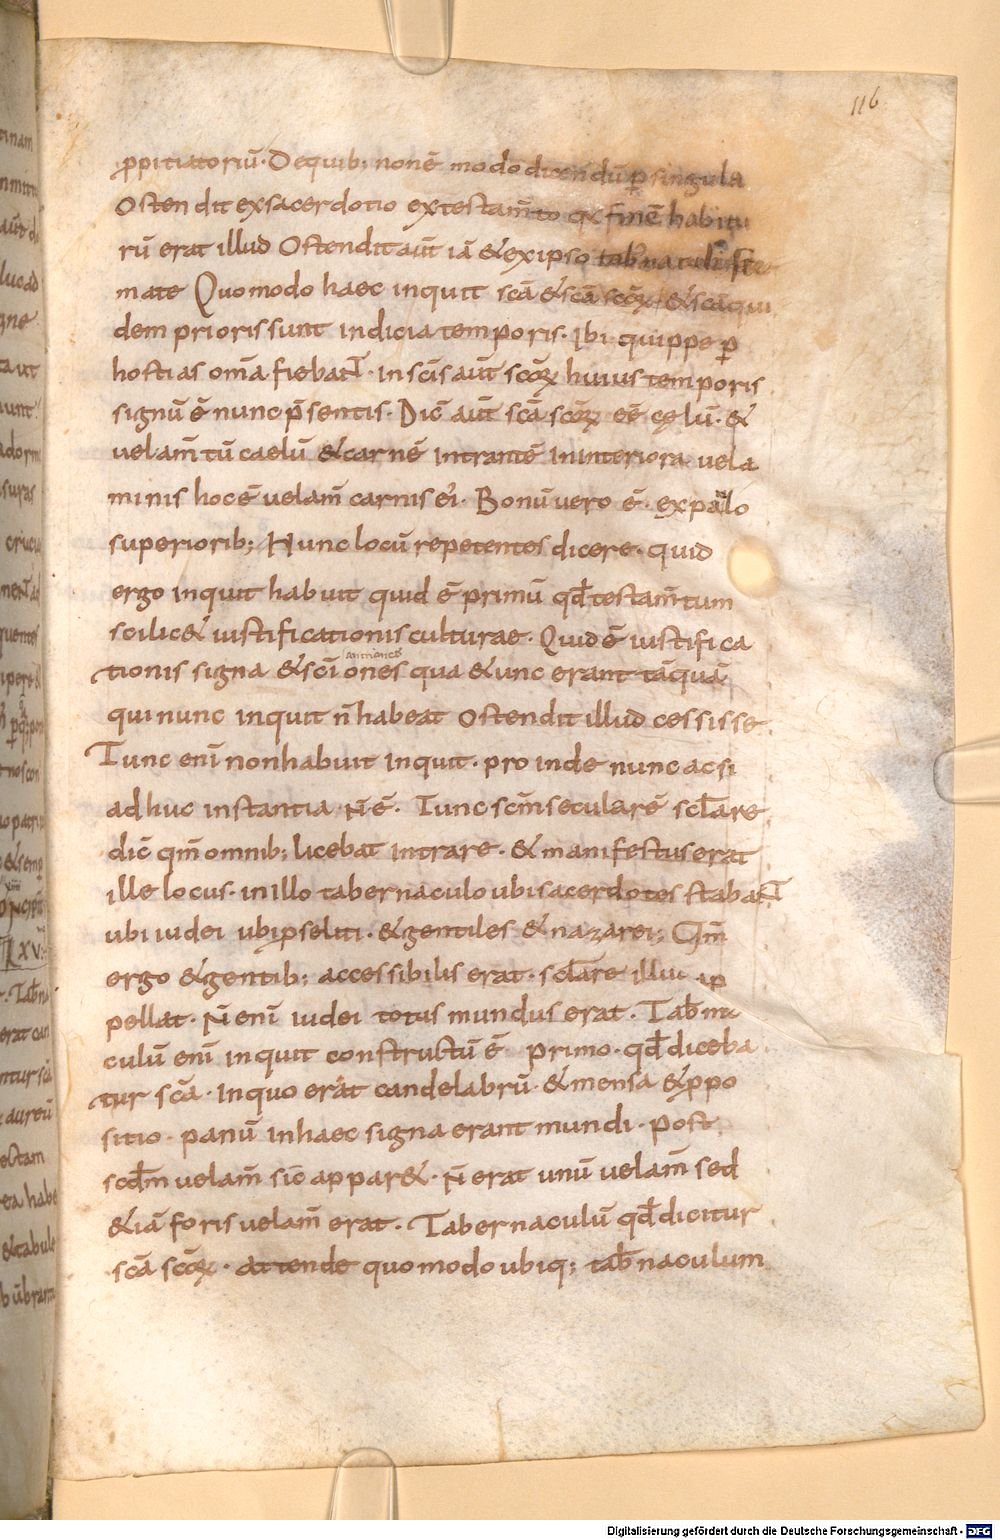 116
ꝓpitiatoriū· Dequib; nonē modo dicendū ꝑ singula
Ostendit exsacerdotio extestam̄to qꝛ finē habitu
rū erat illud Ostendit aūt iā & exipso tab̄naculi sce
mate Quomodo haec inquit scā & scā scōꝝ & scā qui
dem prioris sunt indicia temporis· Ibi quippe ꝑ
hostias om̄a fiebant· in scīs aūt scōꝝ huius temporis
signū ē nunc p̄sentis· Dic̄ aūt scā scōꝝ eē cęlū· &
uelam̄tū caelū & carnē intrantē ininteriora uela
minis hoc ē uelam̄ carnis ei· Bonū uero ē· expaulo
superiorib; Hunc locū repetentes dicere· quid
ergo inquit habuit quid ē primū qd̄ testam̄tum
scilic& iustificationis culturae· Quid ē iustifica
tionis signa & sciones qua & unc erant tāquā
qui nunc inquit n̄ habeat Ostendit illud cessisse
Tunc enī non habuit inquit· proinde nunc acsi
adhuc instantia n̄ ē· Tunc scm̄ secularē sc̄lare
dic̄ qm̄ omnib; licebat intrare· & manifestus erat
ille locus· in illo tabernaculo ubi sacerdotes stabant
ubi iudei ubi pseliti· & gentiles & nazarei; Qm̄
ergo & gentib; accessibilis erat· sc̄lare illuc ap
pellat· N̄ enī iudei totus mundus erat· Tab̄na
culū enī inquit constructū ē primo· qd̄ diceba
tur scā· In quo erat candelabrū & mensa & ꝓpo
sitio· panū inhaec signa erant mundi· Post
scd̄m uelam̄ sic appar&· N̄ erat unū uelam̄ sed
& iā foris uelam̄ erat· Tabernaculū qd̄ dicitur
scā scōꝝ· Attende quomodo ubiq; tab̄naculum
Digitalisierung gefördert durch die Deutsche Forschungsgemeinschaft - DFG